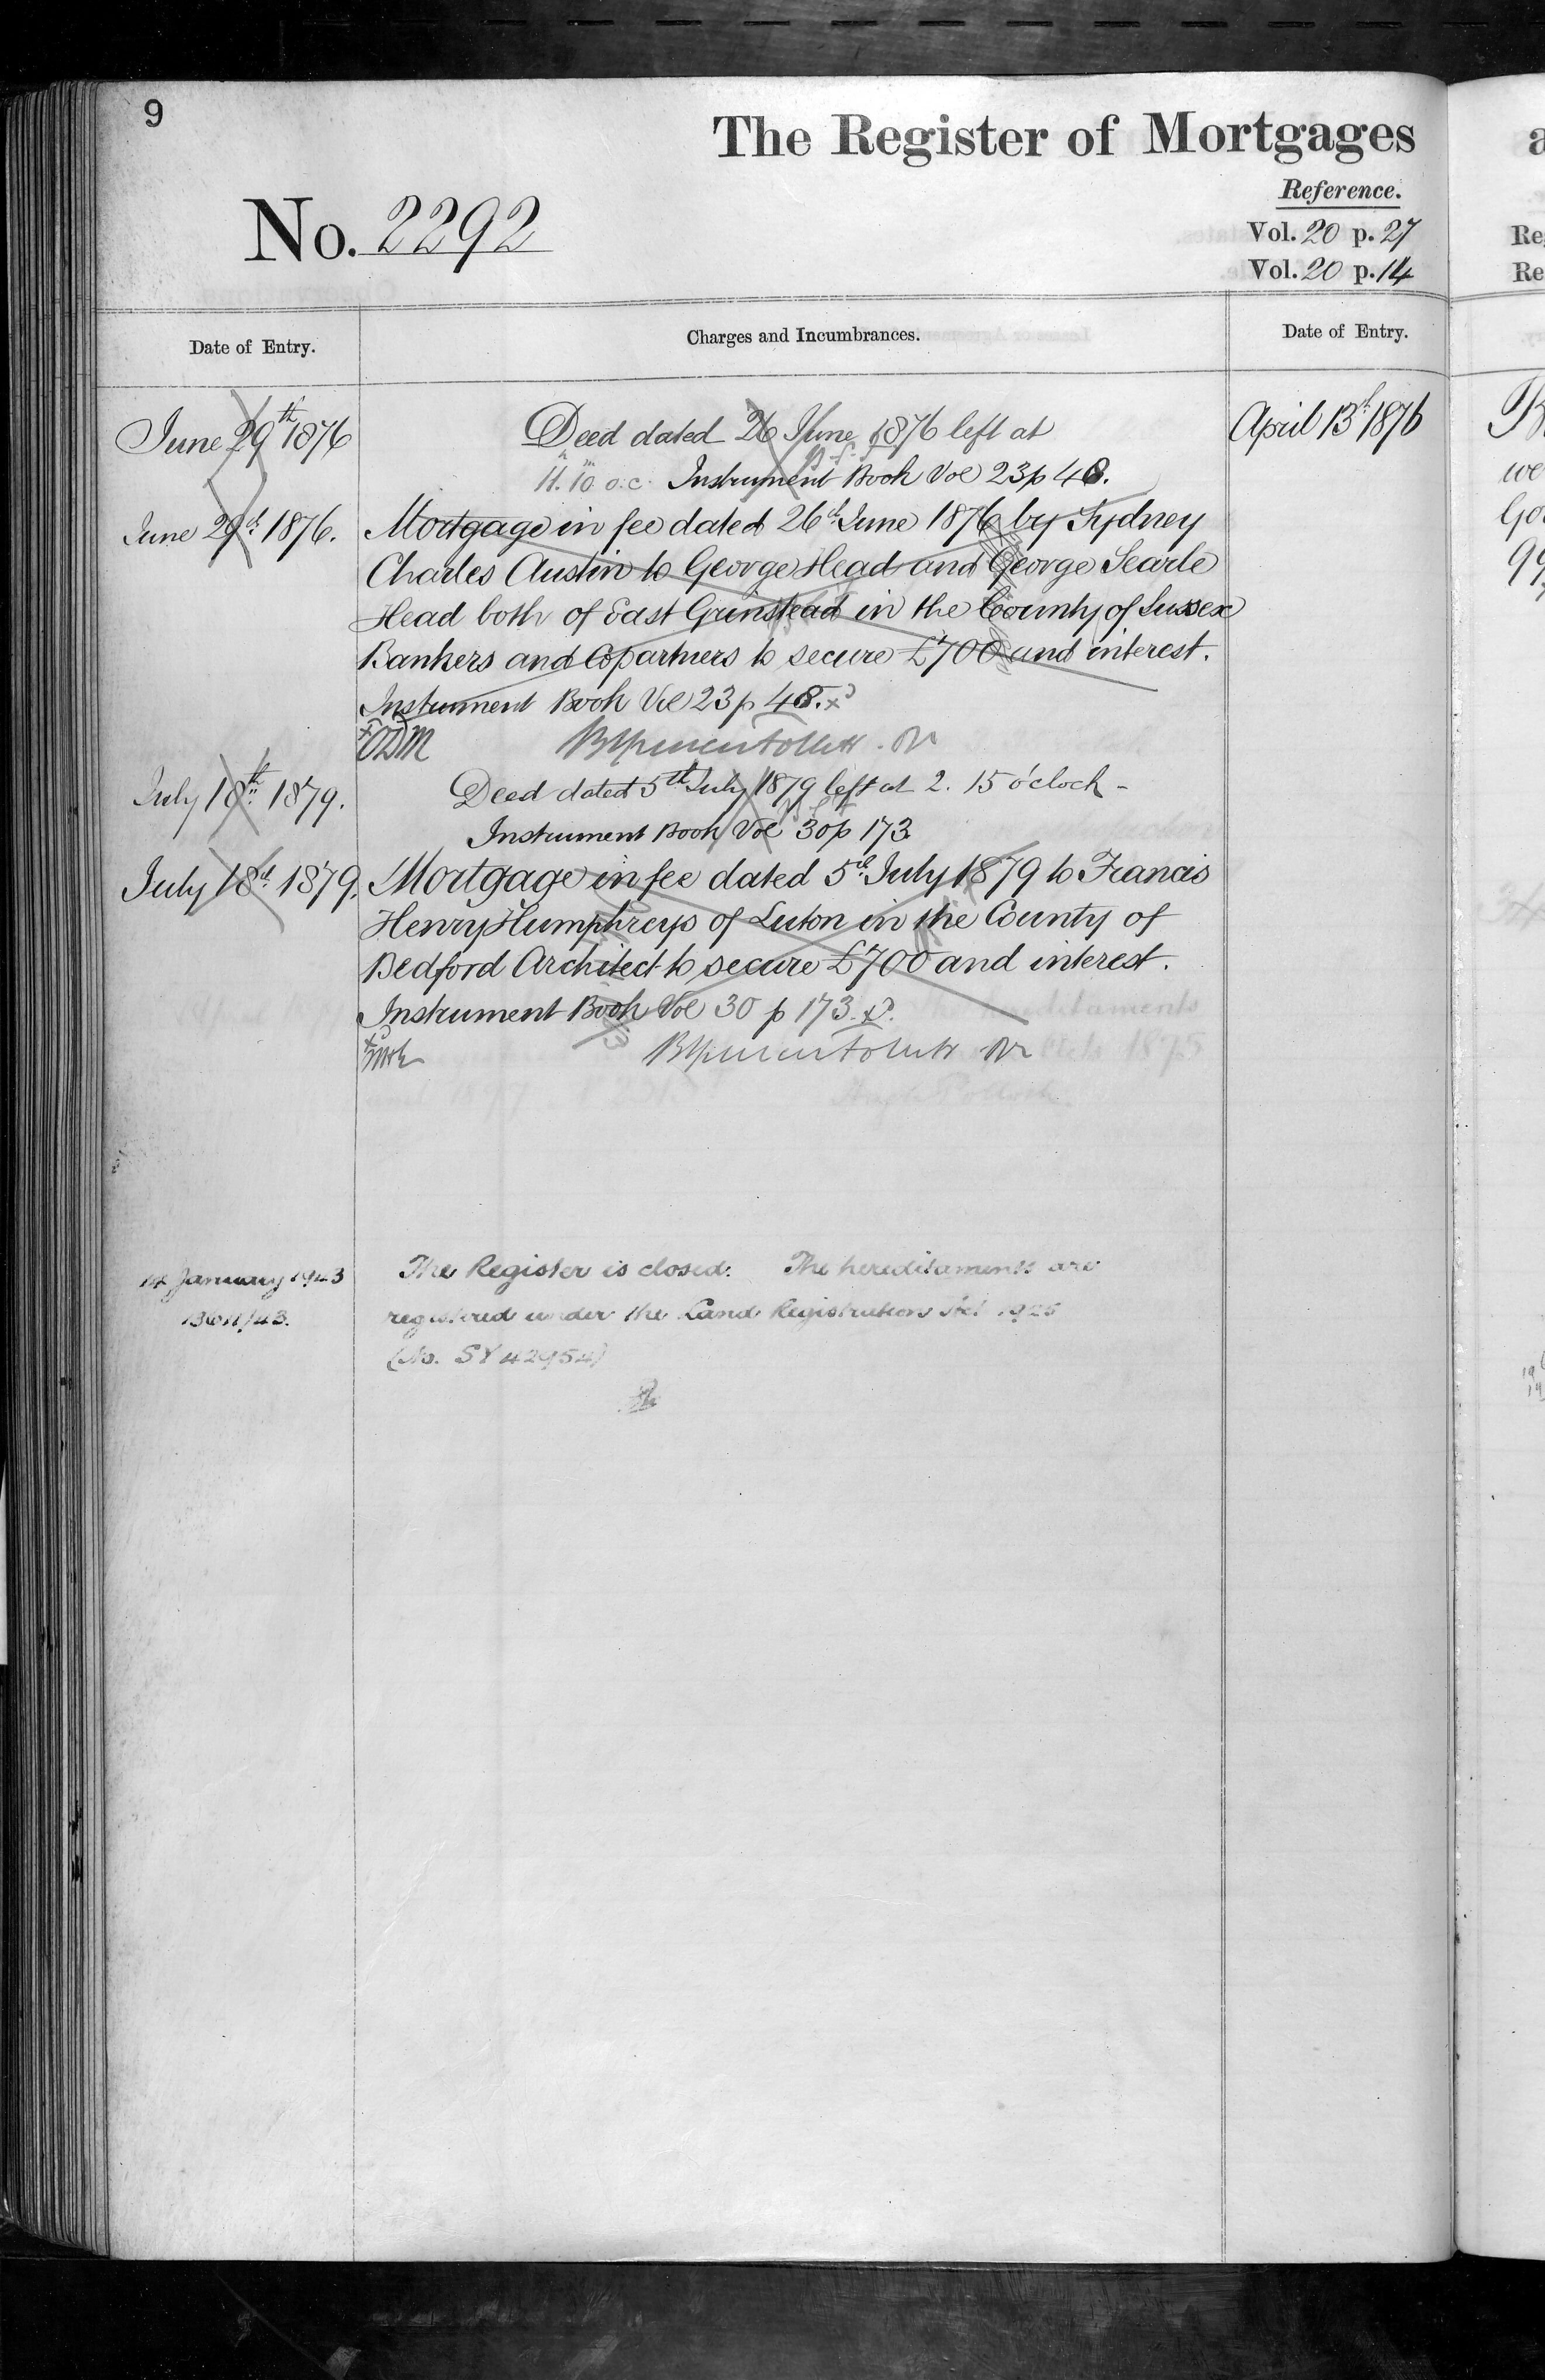 9
The Register of Mortgages
Reference.
No. 2292
Vol. 20 p. 27
Vol. 20 p. 14
Date of Entry.
Charges and Incumbrances.
Date of Entry.
June 29th 1876
Deed dated 26 June 1876 left at
April 13th 1876
11.10 o.c. Instrument Book Vol 23 p 48.
June 29th 1876.
Mortgage in fee dated 26th June 1876 by Sydney
Charles Austin to George Head and George Searle
Head both of East Grinstead in the County of Sussex
Bankers and Copartners to secure £700 and interest.
Instrument Book Vol 23 p 48.
ODM
July 18th 1879.
Deed dated 5th July 1879 left at 2. 15 o'clock -
Instrument Book Vol 30 p 173
July 18th 1879.
Mortgage in fee dated 5th July 1879 to Francis
Henry Humphreys of Luton in the County of
Bedford Architect to secure £700 and interest.
Instrument Book Vol 30 p 173.
14 January 1943
The Register is closed. The hereditaments are
registered under the Land Registration Act 1925
(No. SY 42954)
Re
Re
we